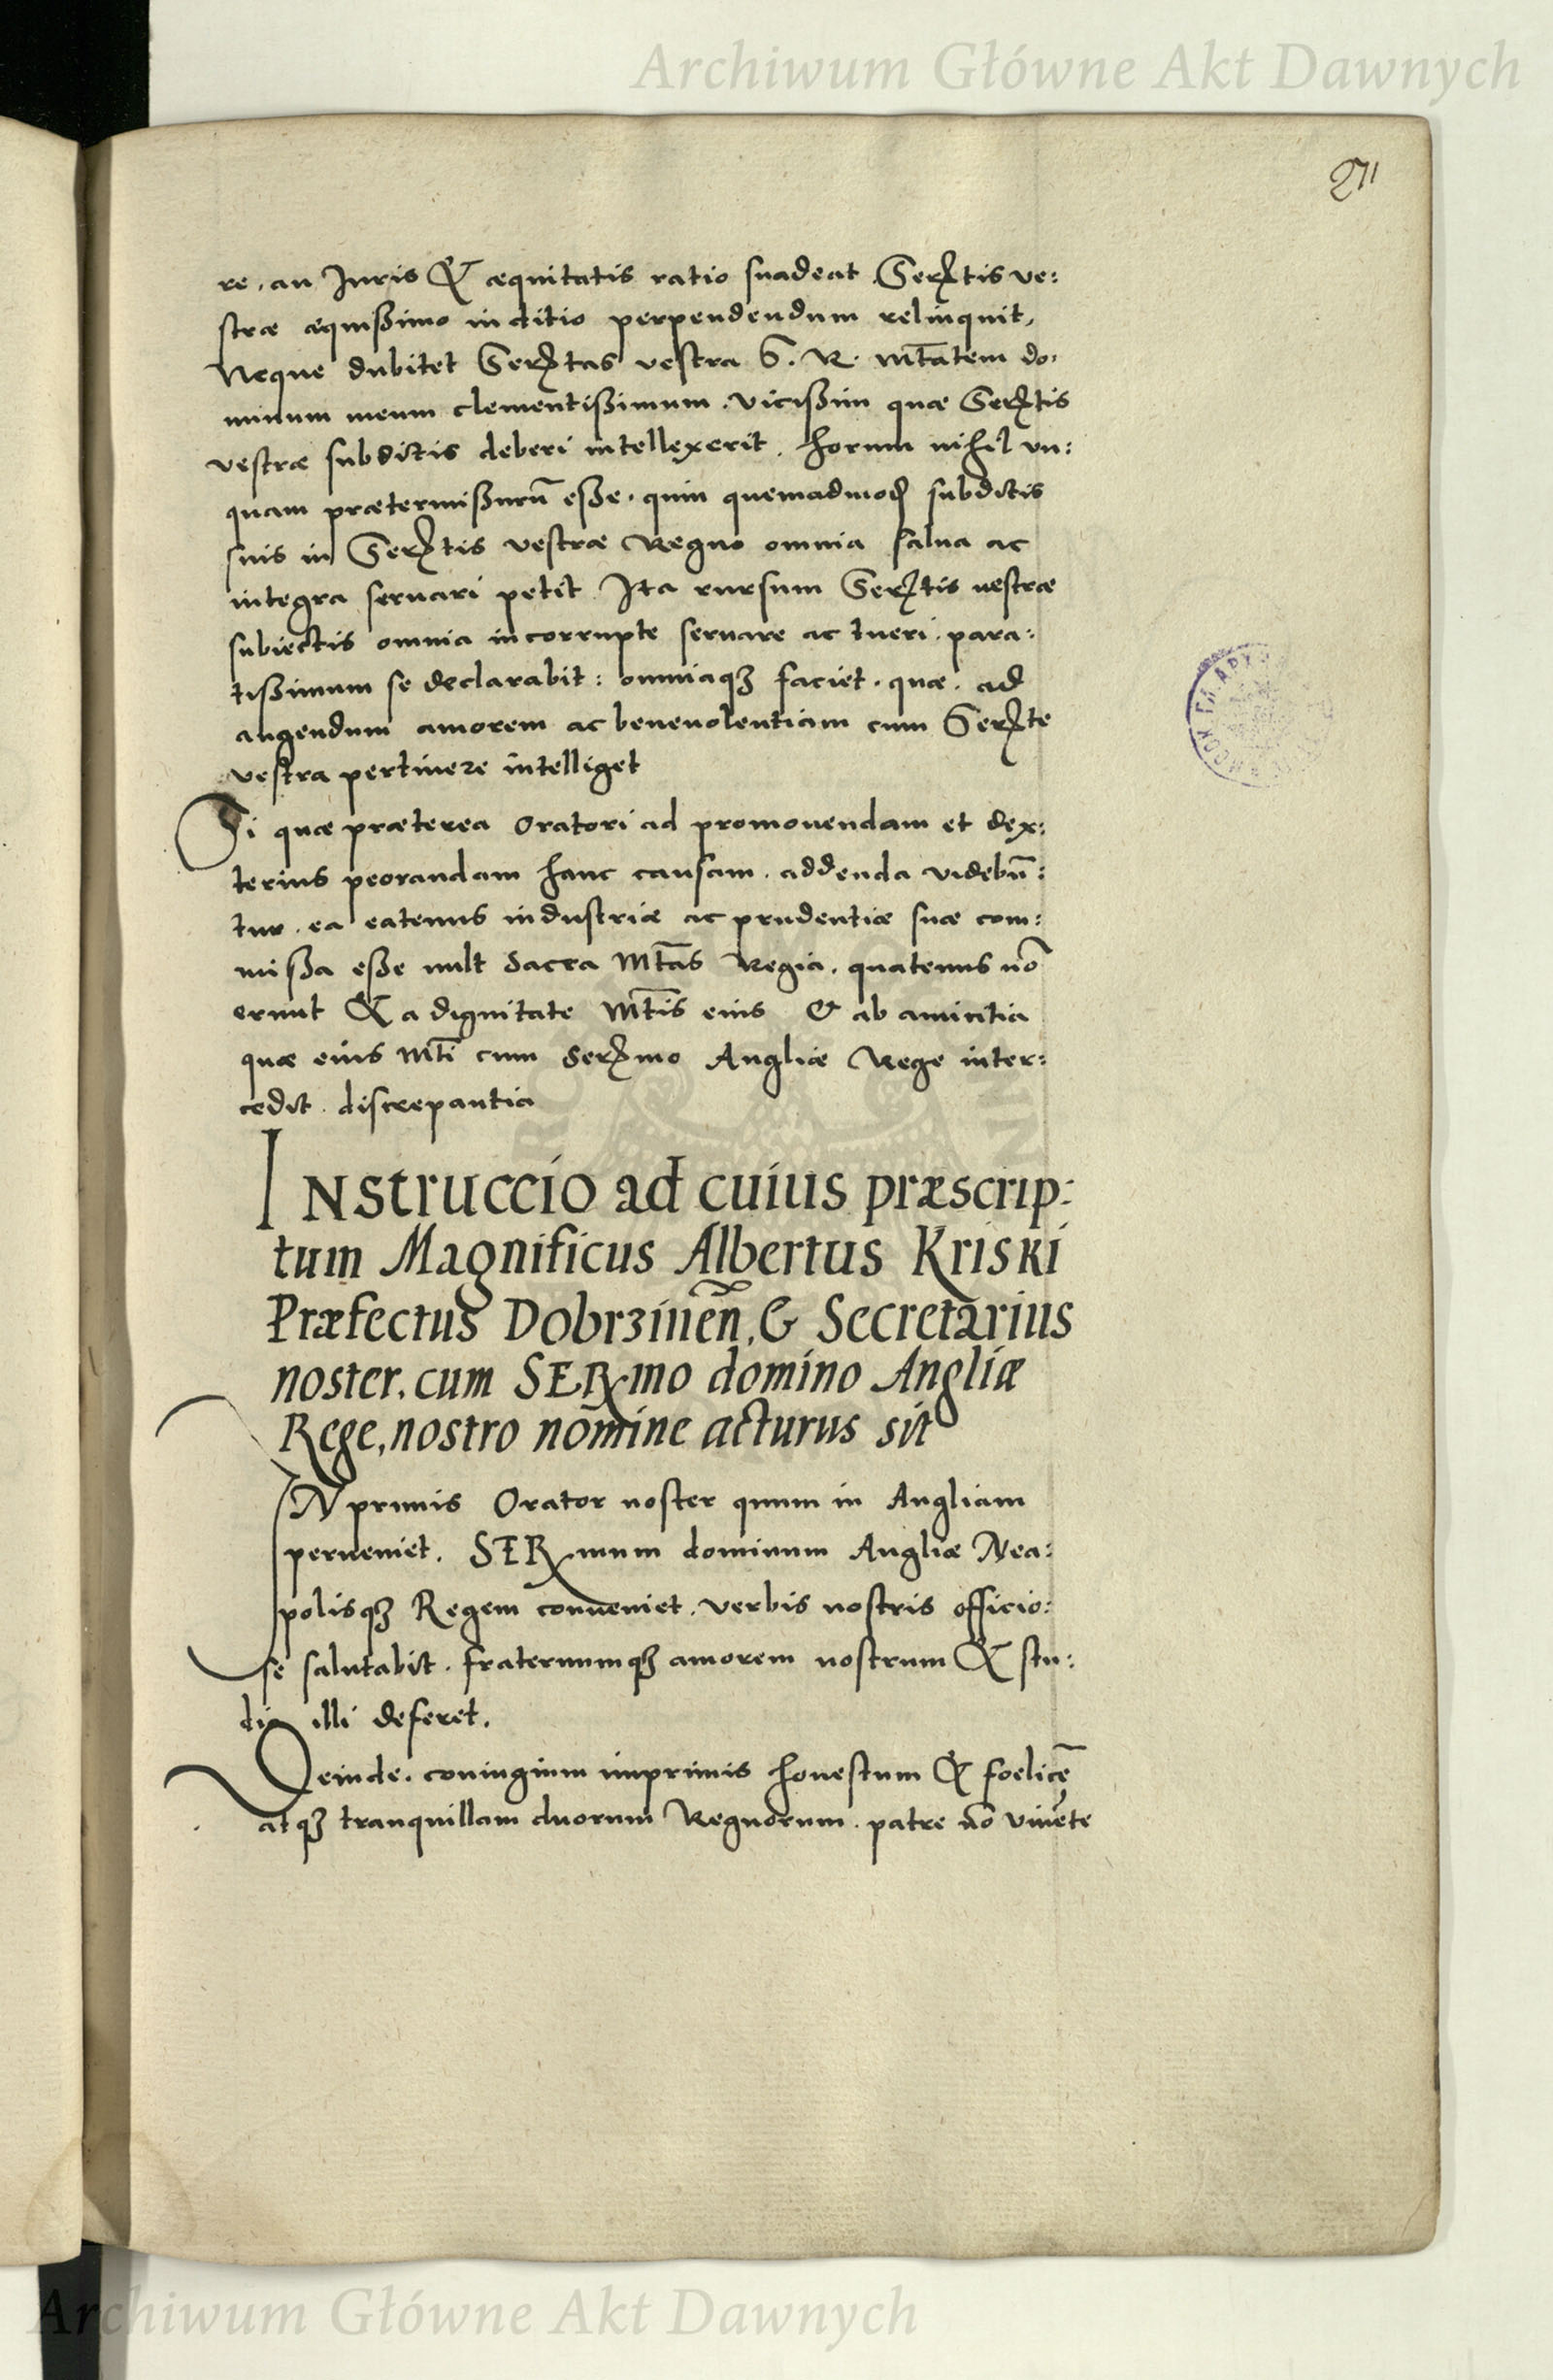 Archiwum Główne Akt Dawnych
271
re, an Juris & æquitatis ratio suadeat Serꝫtis ve:
stræ æquißimo iuditio perpendendum relinquit,
Neque dubitet Serꝫtas vestra S. R. Mt̃atem do:
minum meum clementißimum. vicißim quæ Serꝫtis
vestræ subditis deberi intellexerit, horum nihil vn:
quam prætermißurũ eße. quin quemadmoð subditis
suis in Serꝫtis vestræ Regno omnia salua ac
integra seruari petit. Ita rursum Serꝫtis uestræ
subiectis omnia incorrupte seruare ac tueri. para:
tißimum se declarabit: omniaqꝫ faciet. quæ. ad
augendum amorem ac beneuolentiam cum Serꝫte
vestra pertinere intelliget
Si quæ præterea Oratori ad promouendam et dex:
terius peorandam hanc causam. addenda videbũ:
tur. ea eatenus industriæ ac prudentiæ suæ com:
mißa eße uult Sacra Mt̃as Regia. quatenus nõ
erunt & a dignitate Mt̃is eius & ab amicitia
quæ eius Mt̃i cum Serꝫmo Angliæ Rege inter:
cedit. discrepantia
INstruccio ad cuius præscrip:
tum Magnificus Albertus Kriski
Præfectus Dobrzineñ, & Secretarius
noster, cum SERꝫmo domino Angliæ
Rege, nostro nomine acturus sit
INprimis Orator noster quum in Angliam
perueniet. SERꝫmum dominum Angliæ Nea:
polisqꝫ Regem conueniet. verbis nostris officio:
se salutabit. fraternumqꝫ amorem nostrum & stu:
dia illi deferet.
Deinde. coniugium imprimis honestum & foelicẽ
atqꝫ tranquillam duorum Regnorum. patre nõ viuẽte
Archiwum Główne Akt Dawnych